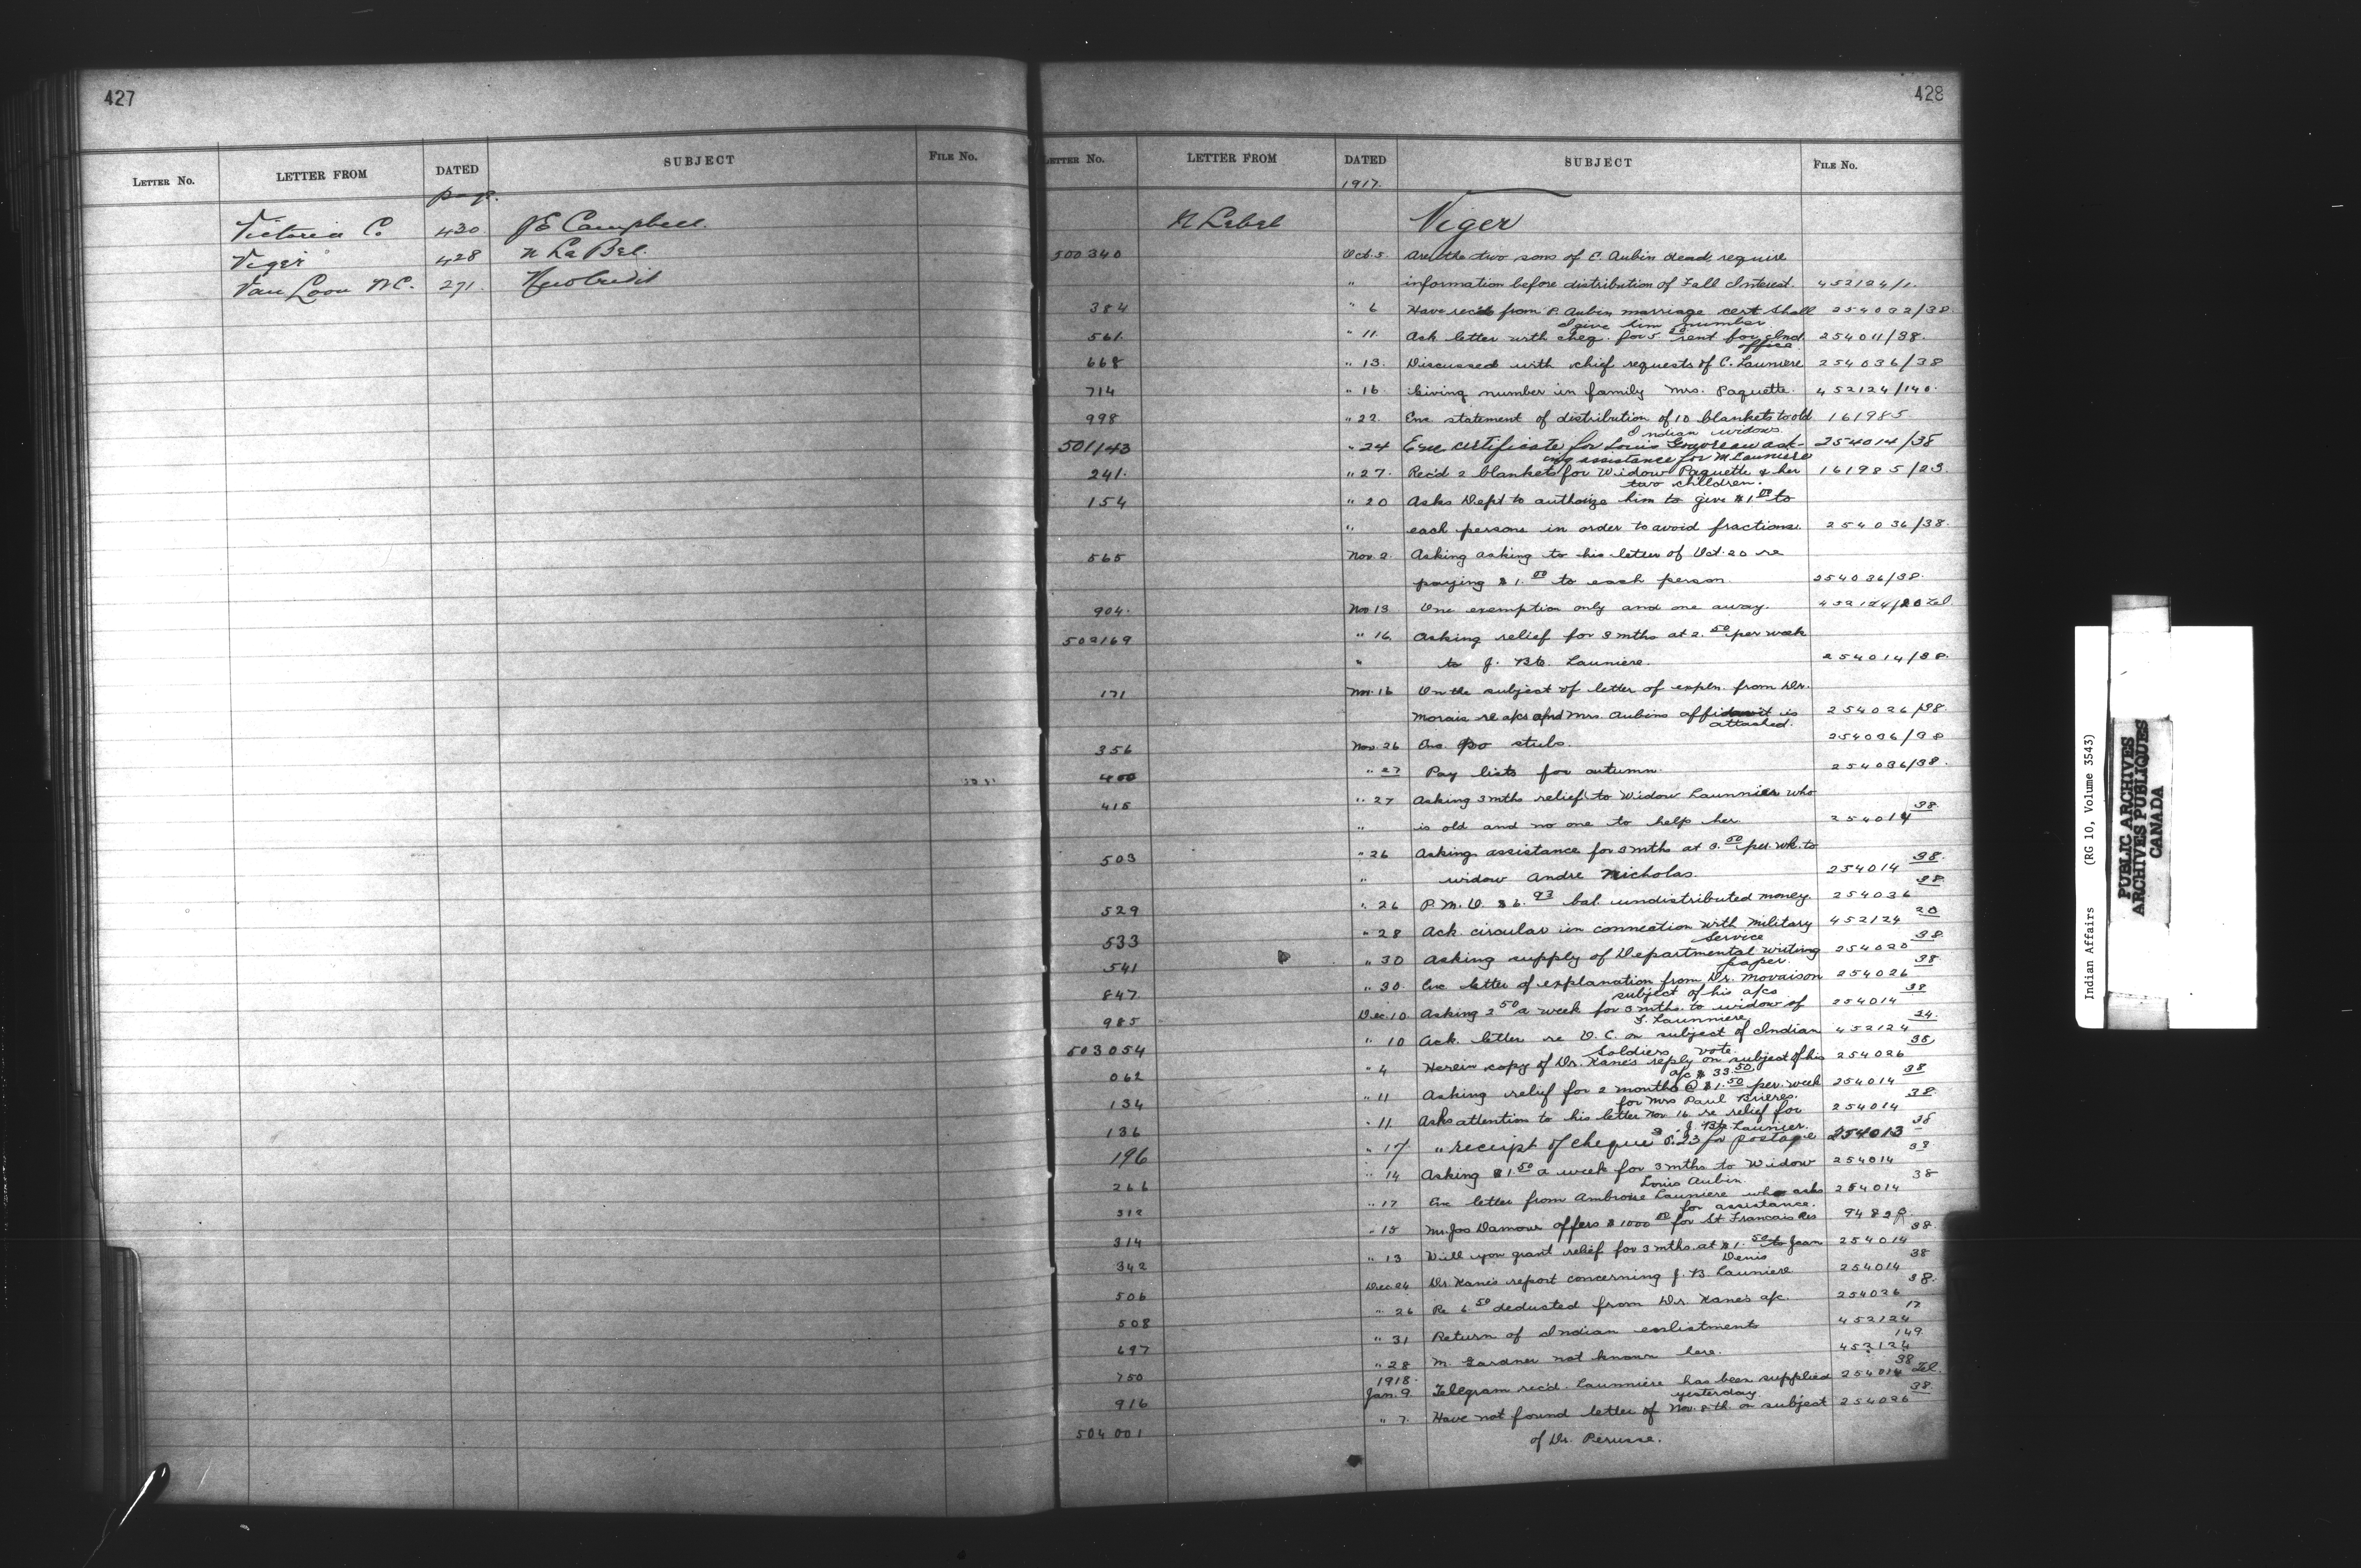 427
LETTER No. LETTER FROM DATED SUBJECT FILE No.
page.
Victoria C. 430 JE Campbell.
Viger 428 N La Bel.
Van Loon W.C. 271 New Credit
428
LETTER No. LETTER FROM DATED SUBJECT FILE No.
1917.
N Lebel Viger
500340 Oct. 5. Are the two sons of E. Aubin dead, require
" information before distribution of Fall Interest. 452124/1.
384 " 6 Have rec'd from P. Aubin marriage cert. Shall 254032/38
I give him number
561. " 11. Ack letter with cheq. for 5 00 rent for Ind. 254011/38.
office
668 " 13. Discussed with chief requests of C. Launiere 254036/38
714 " 16 Giving number in family Mrs. Paquette. 452124/140.
998 " 22. Enc statement of distribution of 10 blankets to old 161985
Indian widows.
501143 " 24 Enc certificate for Louis ask- 254014/38
ing assistance for M Launiere
241. " 27. Rec'd 2 blankets for Widow Paquette & her 161985/23.
two children.
154 " 20 Asks Dept to authorize him to give $1 00 to
" each persons in order to avoid fractions. 254036/38.
565 Nov. 2. Asking asking to his letter of Oct. 20 re
paying $1. 00 to each person. 254036/38.
904. Nov 13 One exemption only and one away. 452124/20 Tel.
502169 " 16. Asking relief for 3 mths at 2. 50 per week
" to J. Bte. Launiere. 254014/38.
171 Nov. 16 On the subject of letter of expln. from Dr.
Morais re a/cs and Mrs. Aubins affidavit is 254026/38.
attached.
356 Nov. 26 stubs. 254036/38
400 " 27 Pay lists for autumn. 254036/38.
415 " 27 Asking 3 mths relief to Widow Launnier who
" is old and no one to help her. 254014 38.
503 " 26 Asking assistance for 3 mths at 3. 50 per. wk. to
" widow Andre Nicholas. 254014 38.
529 " 26 P.M.O. $6. 93 bal. undistributed money. 254036 38.
533 " 28 Ack. circular in connection with Military 452124 20
Service
541 " 30 Asking supply of Departmental writing 254020 38
paper.
847. " 30. Enc letter of explanation from Dr. Movaison 254026 38
subject of his a/cs
985 Dec. 10. Asking 2 50 a week for 3 mths. to widow of 254014 38
Launniere
503054 " 10 Ack. letter re O.C. on subject of Indian 452124 24.
Soldiers vote.
062 " 4 Herein copy of Dr. Kane's reply on subject of his 254026 38
a/c $33.50
134 " 11 Asking relief for 2 months @ $1. 50 per. week 254014 38
for Mrs Paul Brieres.
136 " 11 Asks attention to his letter Nov 16 re relief for 254014 38.
J. Bte. Launier.
196 " 17 " receipt of cheque for postage 254013 38
266 " 14 Asking $1. 50 a week for 3 mths to Widow 254014 38
Louis Aubin
312 " 17 Enc letter from Ambroise Launiere who asks 254014 38
for assistance.
314 " 15 Mr. Jos Damour offers $1000 00 for St. Francais Res
342 " 13 Will you grant relief for 3 mths. at $1. 50 to Jean 254014 38.
Denis
506 Dec. 24 Dr. Kane's report concerning J. B Launiere. 254014 38
508 " 26 Re 6. 50 deducted from Dr. Kane's a/c. 254026 38.
697 " 31 Return of Indian enlistments 452124 12
750 " 28 M. Gardner not known here. 452124 149
1918.
916 Jan. 9 Telegram rec'd. Launniere has been supplied 254014 38 Tel.
yesterday.
504001 " 7. Have not found letter of Nov. 8th. on subject 254026 38.
of Dr. Perusse.
Indian Affairs (RG 10, Volume 3543)
PUBLIC ARCHIVES
ARCHIVES PUBLIQUES
CANADA